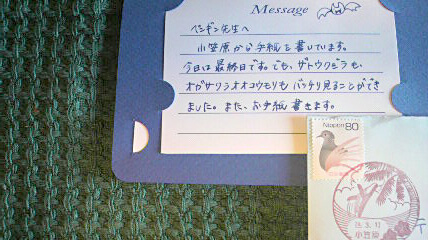 Message
ペンギン先生へ
小笠原から手紙を書いています。
今日は最終日です。でも、ザトウクジラも、
オガサワラオオコウモリもバッチリ見ることができ
ました。また、お手紙書きます。
Nippon 80
小笠原
〒